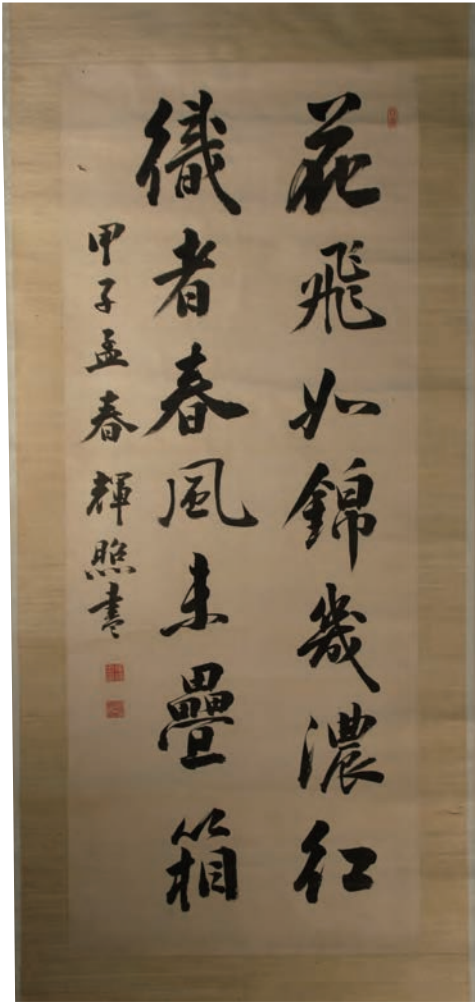 花飛如錦幾濃紅
織者春風未疊箱
甲子孟春 輝照書